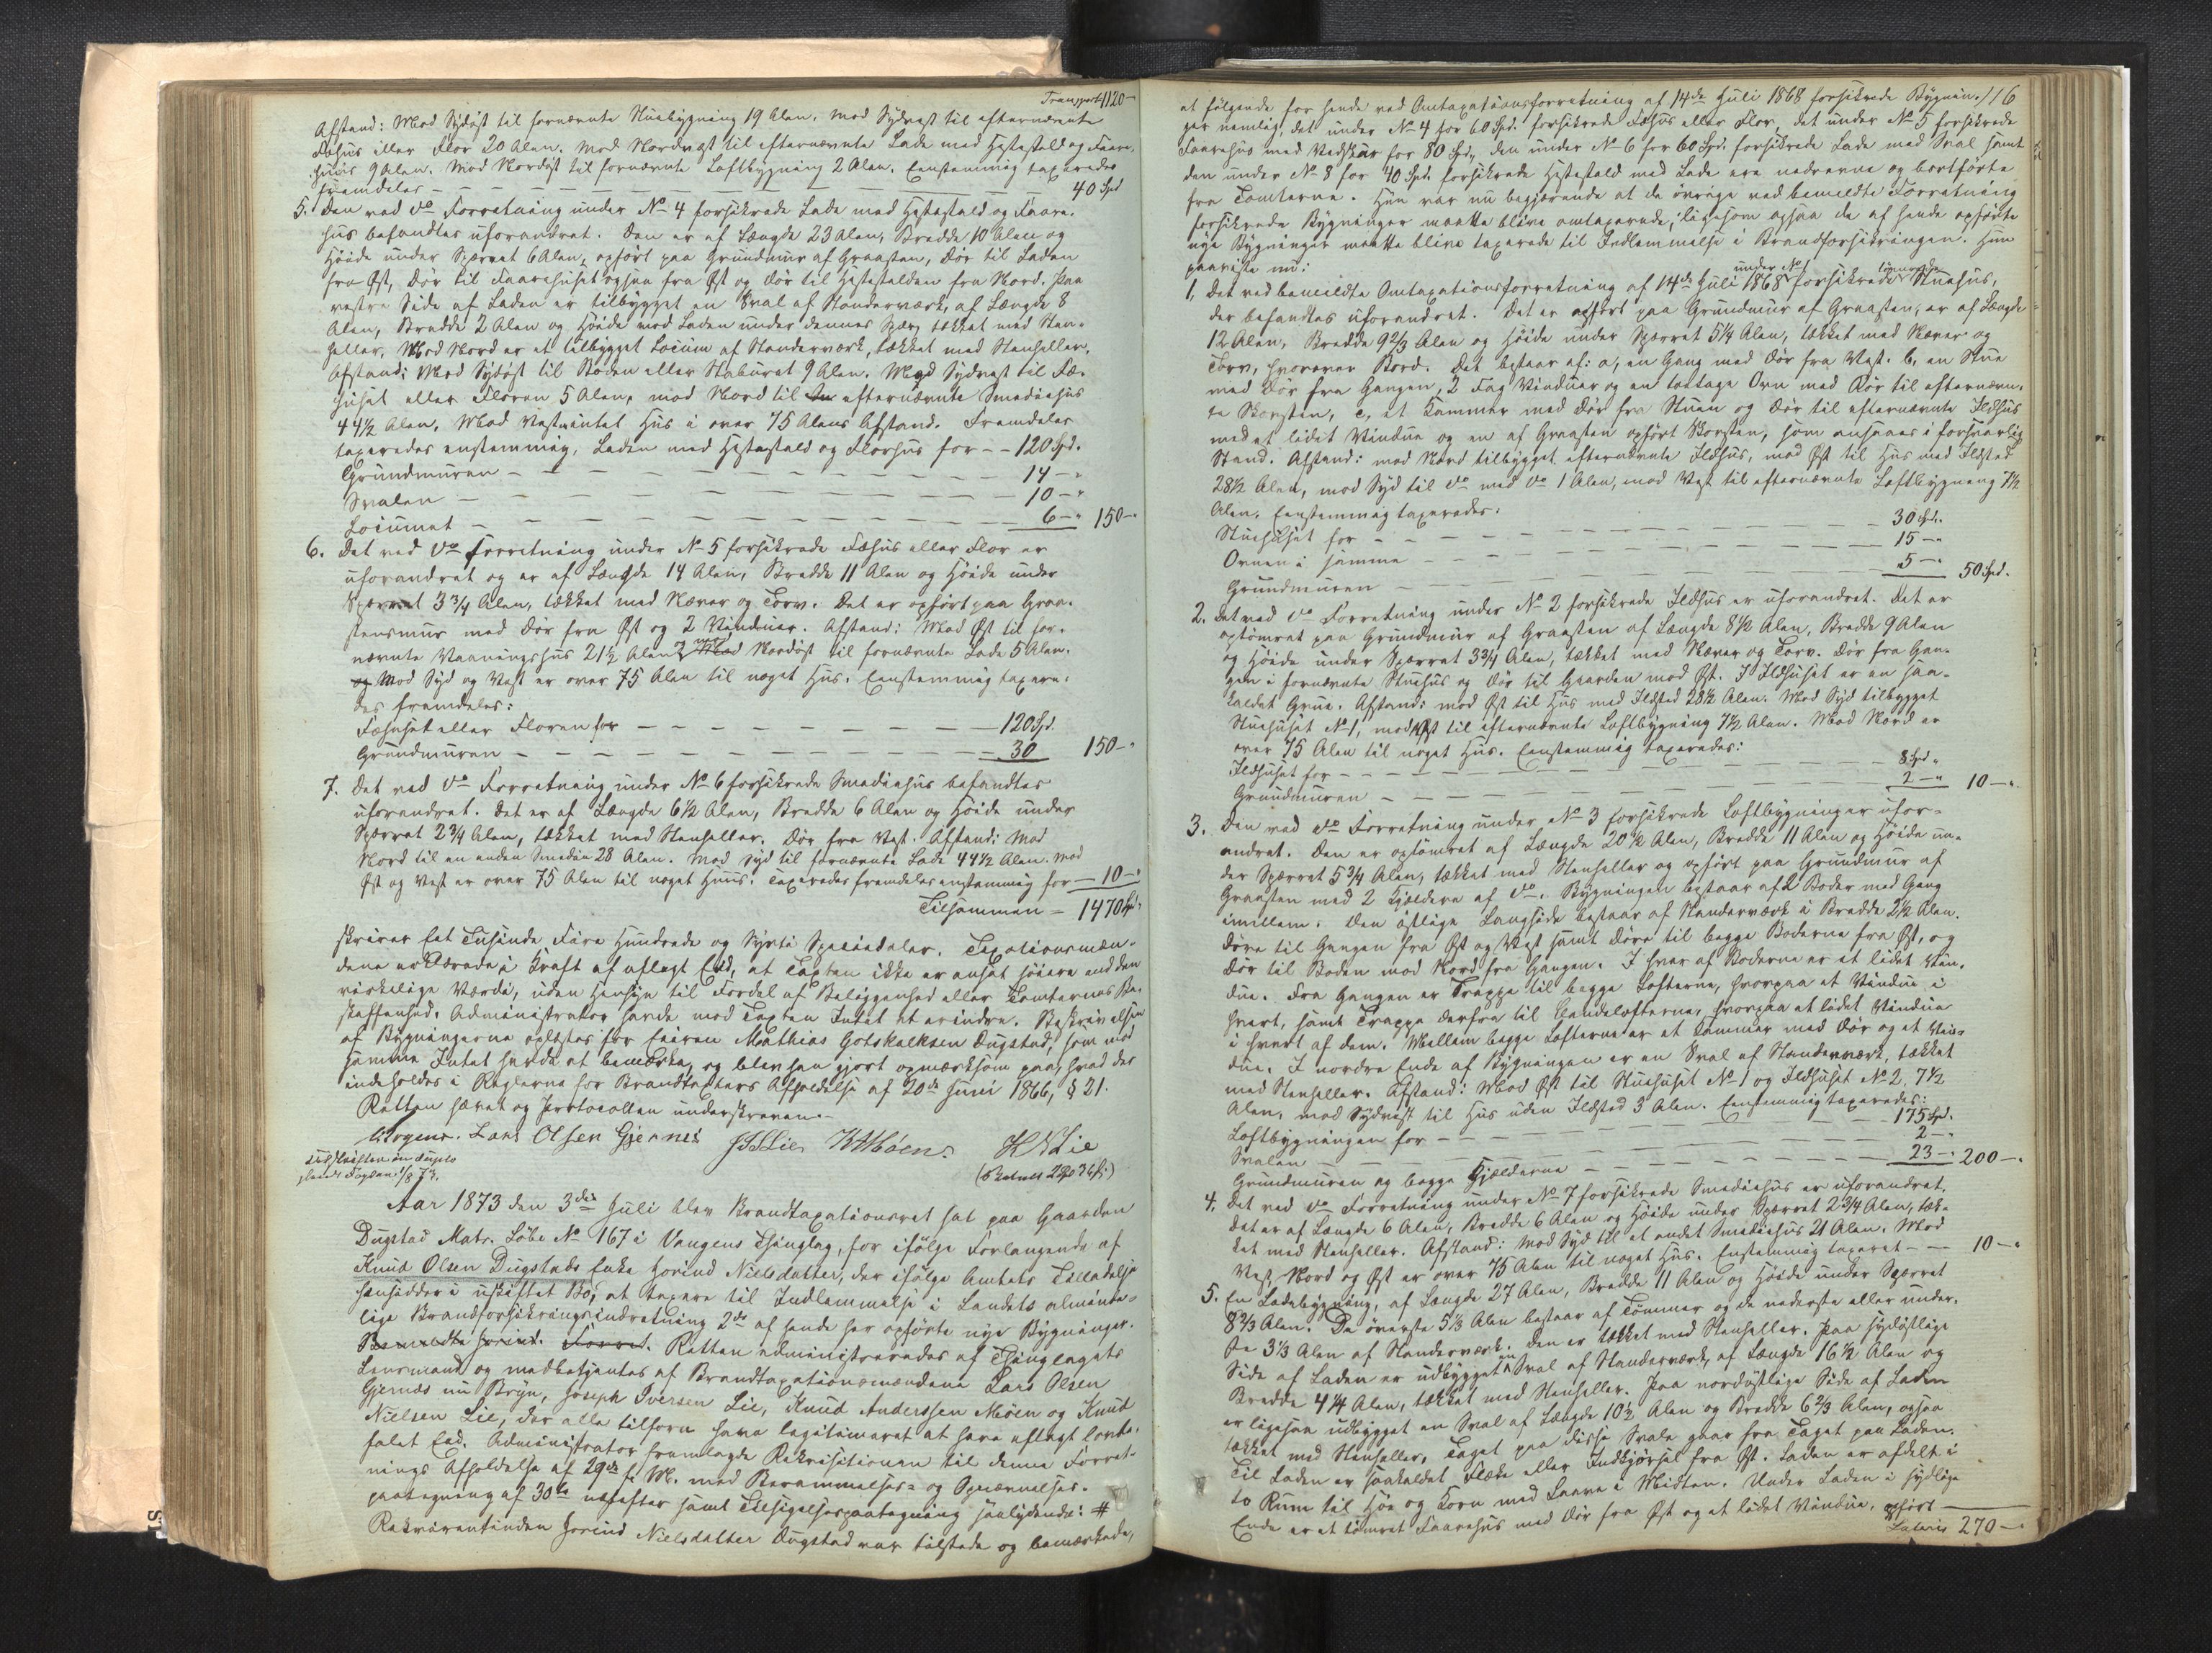 Transport 1120 -
Afstand: Mod Sydøst til fornævnte Stuebygning 19 Alen. Mod Sydvest til efternævnte
Fæhus eller Flor 20 Alen. Mod Nordvest til efternævnte Lade med Hestestald og Faare-
huus 9 Alen. Mod Nordøst til fornævnte Loftbygning 2 Alen. Eenstemmig taxeredes
fremdeles - - - 40 Spd
5. Den ved do Forretning under No 4 forsikrede Lade med Hestestald og Faare-
hus befandtes uforandret. Den er af Længde 23 Alen, Bredde 10 Alen og
Høide under Sperret 6 Alen, opført paa Grundmur af Graasten, Dør til Laden
fra Øst, Dør til Faarehuset ogsaa fra Øst og Dør til Hestestalden fra Nord. Paa
vestre Side af Laden er tilbygget en Sval af Standerværk, af Længde 8
Alen, Bredde 2 Alen og Høide mod Laden under dennes Spær, tækket med Sten-
heller. Mod Nord er et tilbygget Locum af Standerværk, tækket med Stenheller.
Afstand: Mod Sydøst til Boden eller Staburet 9 Alen. Mod Sydvest til Fæ-
huset eller Floren 5 Alen, mod Nord til efternævnte Smediehus
44 1/2 Alen. Mod Vest intet Hus i over 75 Alens Afstand. Fremdeles
taxeredes enstemmig, Laden med Hestestald og Florhus for - - 120 Spd.
Grundmuren - - - 14 - "
Svalen - - - 10 - "
Locumet - - - 6 - " 150 - "
6. Det ved do Forretning under No 5 forsikrede Fæhus eller Flor er
uforandret og er af Længde 14 Alen, Bredde 11 Alen og Høide under
Sperret 3 3/4 Alen, tækket med Næver og Torv. Det er opført paa Graa-
stensmur med Dør fra Øst og 2 Vinduer. Afstand: Mod Øst til for-
nævnte Vaaningshus 21 1/2 Alen, og mod Nordøst til fornævnte Lade 5 Alen.
Mod Syd og Vest er over 75 Alen til noget Hus. Eenstemmig taxere-
des fremdeles:
Fæhuset eller Floren for - - - 120 Spd.
Grundmuren - - - 30 150 - "
7. Det ved do Forretning under No 6 forsikrede Smediehus befandtes
uforandret. Det er af Længde 6 1/2 Alen, Bredde 6 Alen og Høide under
Sperret 2 3/4 Alen, tækket med Stenheller. Dør fra Vest. Afstand: Mod
Nord til en anden Smedie 28 Alen. Mod Syd til fornævnte Lade 44 1/2 Alen. Mod
Øst og Vest er over 75 Alen til noget Huus. Taxeredes fremdeles enstemmig for - 10 - "
Tilsammen - 1470 Spd
skriver Eet Tusinde Fire Hundrede og Syvti Speciedaler. Taxationsmæn-
dene erklærede i Kraft af aflagt Eed, at Taxten ikke er ansat høiere end den
virkelige Værdi, uden Hensyn til Fordel af Beliggenhed eller Tomternes Be-
skaffenhed. Administrator havde mod Taxten Intet at erindre. Beskrivelsen
af Bygningerne oplæstes for Eieren Mathias Gotskalksen Dugstad, som mod
samme Intet havde at bemærke, og blev han gjort opmærksom paa, hvad der
indeholdes i Reglerne for Brandtaxters Afholdelse af 20de Juni 1866, § 21.
Retten hævet og Protocollen underskreven.
Lars Olsen Gjernes JISLie KAMøen. KNLie
(Betalt 2 Spd 36 ß)
Aar 1873 den 3die Juli blev Brandtaxationsret sat paa Gaarden
Dugstad Matr. Løbe No 167 i Vangens Thinglag, for ifølge Forlangende af
Knud Olsen Dugstads Enke Gorind Nielsdatter, der ifølge Amtets Tilladelse
hensidder i uskiftet Bo, at taxere til Indlemmelse i Landets alminde-
lige Brandforsikringsindretning 2de af hende her opførte nye Bygninger.
Retten administreredes af Thinglagets
Lensmand og medbetjentes af Brandtaxationsmændene Lars Olsen
Gjernæs nu Bryn, Joseph Iversen Lie, Knud Anderssen Møen og Knud
Nielsen Lie, der alle tilforn have legitimeret at have aflagt lovbe-
falet Eed. Administrator fremlagde Rekvisitionen til denne Forret-
nings Afholdelse af 29de f. M. med Berammelses- og Opnævnelses-
paategning af 30te næstefter samt Tilsigelsespaategning saalydende: #
Rekvirentinden Gorind Nielsdatter Dugstad var tilstede og bemærkede,
116
at følgende for hende ved Omtaxationsforretning af 14de Juli 1868 forsikrede Bygnin-
ger nemlig, det under No 4 for 60 Spd. forsikrede Fæhus eller Flor, det under No 5 forsikrede
Faarehus med Vedskur for 80 Spd., den under No 6 for 60 Spd. forsikrede Lade med Sval samt
den under No 8 for 40 Spd. forsikrede Hestestald med Lade ere nedrevne og bortførte
fra Tomterne. Hun var nu begjærende at de øvrige ved bemeldte Forretning
forsikrede Bygninger maatte blive omtaxerede, ligesom ogsaa de af hende opførte
nye Bygninger maatte blive taxerede til Indlemmelse i Brandforsikringen. Hun
paaviste nu:
1, Det ved bemeldte Omtaxationsforretning af 14de Juli 1868 under No 1 forsikrede tømrede Stuehus,
der befandtes uforandret. Det er opført paa Grundmur af Graasten, er af Længde
12 Alen, Bredde 9 2/3 Alen og Høide under Sperret 5 1/4 Alen, tækket med Næver og
Torv, hvorover Bord. Det bestaar af: a, en Gang med Dør fra Vest. b, en Stue
med Dør fra Gangen, 2 Fag Vinduer og en toetages Ovn med Rør til efternævn-
te Skorsten, c, et Kammer med Dør fra Stuen og Dør til efternævnte Ildhus
med et lidet Vindue og en af Graasten opført Skorsten, som ansaaes i forsvarlig
Stand. Afstand: mod Nord tilbygget efternævnte Ildhus, mod Øst til Hus med Ildsted
28 1/2 Alen, mod Syd til do med do 1 Alen, mod Vest til efternævnte Loftbygning 7 1/2
Alen. Eenstemmig taxeredes:
Stuehuset for - - - 30 Spd.
Ovnen i samme - - - 15 - "
Grundmuren - - - 5 - " 50 Spd.
2. Det ved do Forretning under No 2 forsikrede Ildhus er uforandret. Det er
optømret paa Grundmur af Graasten af Længde 8 1/2 Alen, Bredde 9 Alen
og Høide under Sperret 3 3/4 Alen, tækket med Næver og Torv. Dør fra Gan-
gen i fornævnte Stuehus og Dør til Gaarden mod Øst. I Ildhuset er en saa-
kaldet Grue. Afstand: mod Øst til Hus med Ildsted 28 1/2 Alen. Mod Syd tilbygget
Stuehuset No 1, mod Vest til efternævnte Loftbygning 7 1/2 Alen. Mod Nord er
over 75 Alen til noget Hus. Eenstemmig taxeredes:
Ildhuset for - - - 8 Spd "
Grundmuren - - - 2 - " 10 - "
3. Den ved do Forretning under No 3 forsikrede Loftbygninger ufor-
andret. Den er optømret af Længde 20 1/2 Alen, Bredde 11 Alen og Høide un-
der Sperret 5 3/4 Alen, tækket med Stenheller og opført paa Grundmur af
Graasten med 2 Kjældere af do. Bygningen bestaar af 2 Boder med Gang
imellem. Den østlige Langside bestaar af Standerværk i Bredde 2 1/2 Alen.
Døre til Gangen fra Øst og Vest samt Døre til begge Boderne fra Øst, og
Dør til Boden mod Nord fra Gangen. I hver af Boderne er et lidet Vin-
due. Fra Gangen er Trappe til begge Lofterne, hvorpaa et Vindue i
hvert, samt Trappe derfra til Hemdelofterne, hvorpaa et lidet Vindue
i hvert af dem. Mellem begge Lofterne er et Kammer med Dør og et Vin-
due. I nordre Ende af Bygningen er en Sval af Standerværk, tækket
med Stenheller. Afstand: Mod Øst til Stuehuset No 1 og Ildhuset No 2, 7 1/2
Alen, mod Sydvest til Hus uden Ildsted 3 Alen. Eenstemmig taxeredes:
Loftbygningen for - - - 175 Spd.
Svalen - - - 2 - "
Grundmuren og begge Kjælderne - - - 23 - " 200 - "
4. Det ved do Forretning under No 7 forsikrede Smediehus er uforandret.
Det er af Længde 6 Alen, Bredde 6 Alen og Høide under Sperret 2 3/4 Alen, tæk-
ket med Stenheller. Afstand: Mod Syd til et andet Smediehus 21 Alen. Mod
Vest, Nord og Øst er over 75 Alen til noget Hus. Enstemmig taxeret - - 10 - "
5. En Ladebygning, af Længde 27 Alen, Bredde 11 Alen og Høide under Sperret
8 2/3 Alen. De øverste 5 1/3 Alen bestaar af Tømmer og de nederste eller under-
ste 3 1/3 Alen af Standerværk. Den er tækket med Stenheller. Paa sydøstlige
Side af Laden er udbygget en Sval af Standerværk, af Længde 16 1/2 Alen og
Bredde 4 1/4 Alen, tækket med Stenheller. Paa nordøstlige Side af Laden
er ligesaa udbygget en Sval af Længde 10 1/2 Alen og Bredde 6 2/3 Alen, ogsaa
tækket med Stenheller, Taget paa disse Svale gaar fra Taget paa Laden.
Til Laden er saakaldet Flæke eller Indkjørsel fra Øst. Laden er afdelt i
to Rum til Høe og Korn med Laave i Midten. Under Laden i sydlige
Ende er et tømret Faarehus med Dør fra Øst og et lidet Vindue, opført
Lateris 270 - "